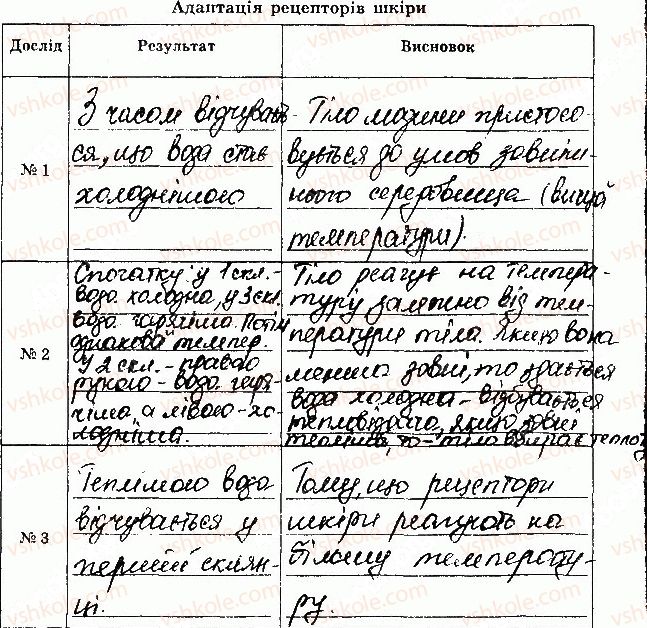 Адаптація рецепторів шкіри
Дослід Результат Висновок
№ 1
З часом відчуваєть-
ся, що вода стає
холоднішою
Тіло людини пристосо-
вується до умов зовніш-
нього середовища (вищої
температури).
№ 2
Спочатку у 1 скл.-
вода холодна, у 3 скл.
вода гарячіша. Потім
однакова темпер.
У 2 скл. - правою
рукою - вода гаря-
чіша, а лівою - хо-
лодніша.
Тіло реагує на темпера-
туру залежно від тем-
ператури тіла. Якщо вона
менша зовні, то здається
вода холодна - відбувається
тепловіддача, якщо зовні
тепліша, то - тіло вбирає теплоту
№ 3
Теплішою вода
відчувається у
першій склян-
ці.
Тому, що рецептори
шкіри реагують на
більшу температу-
ру.
vshkole.com